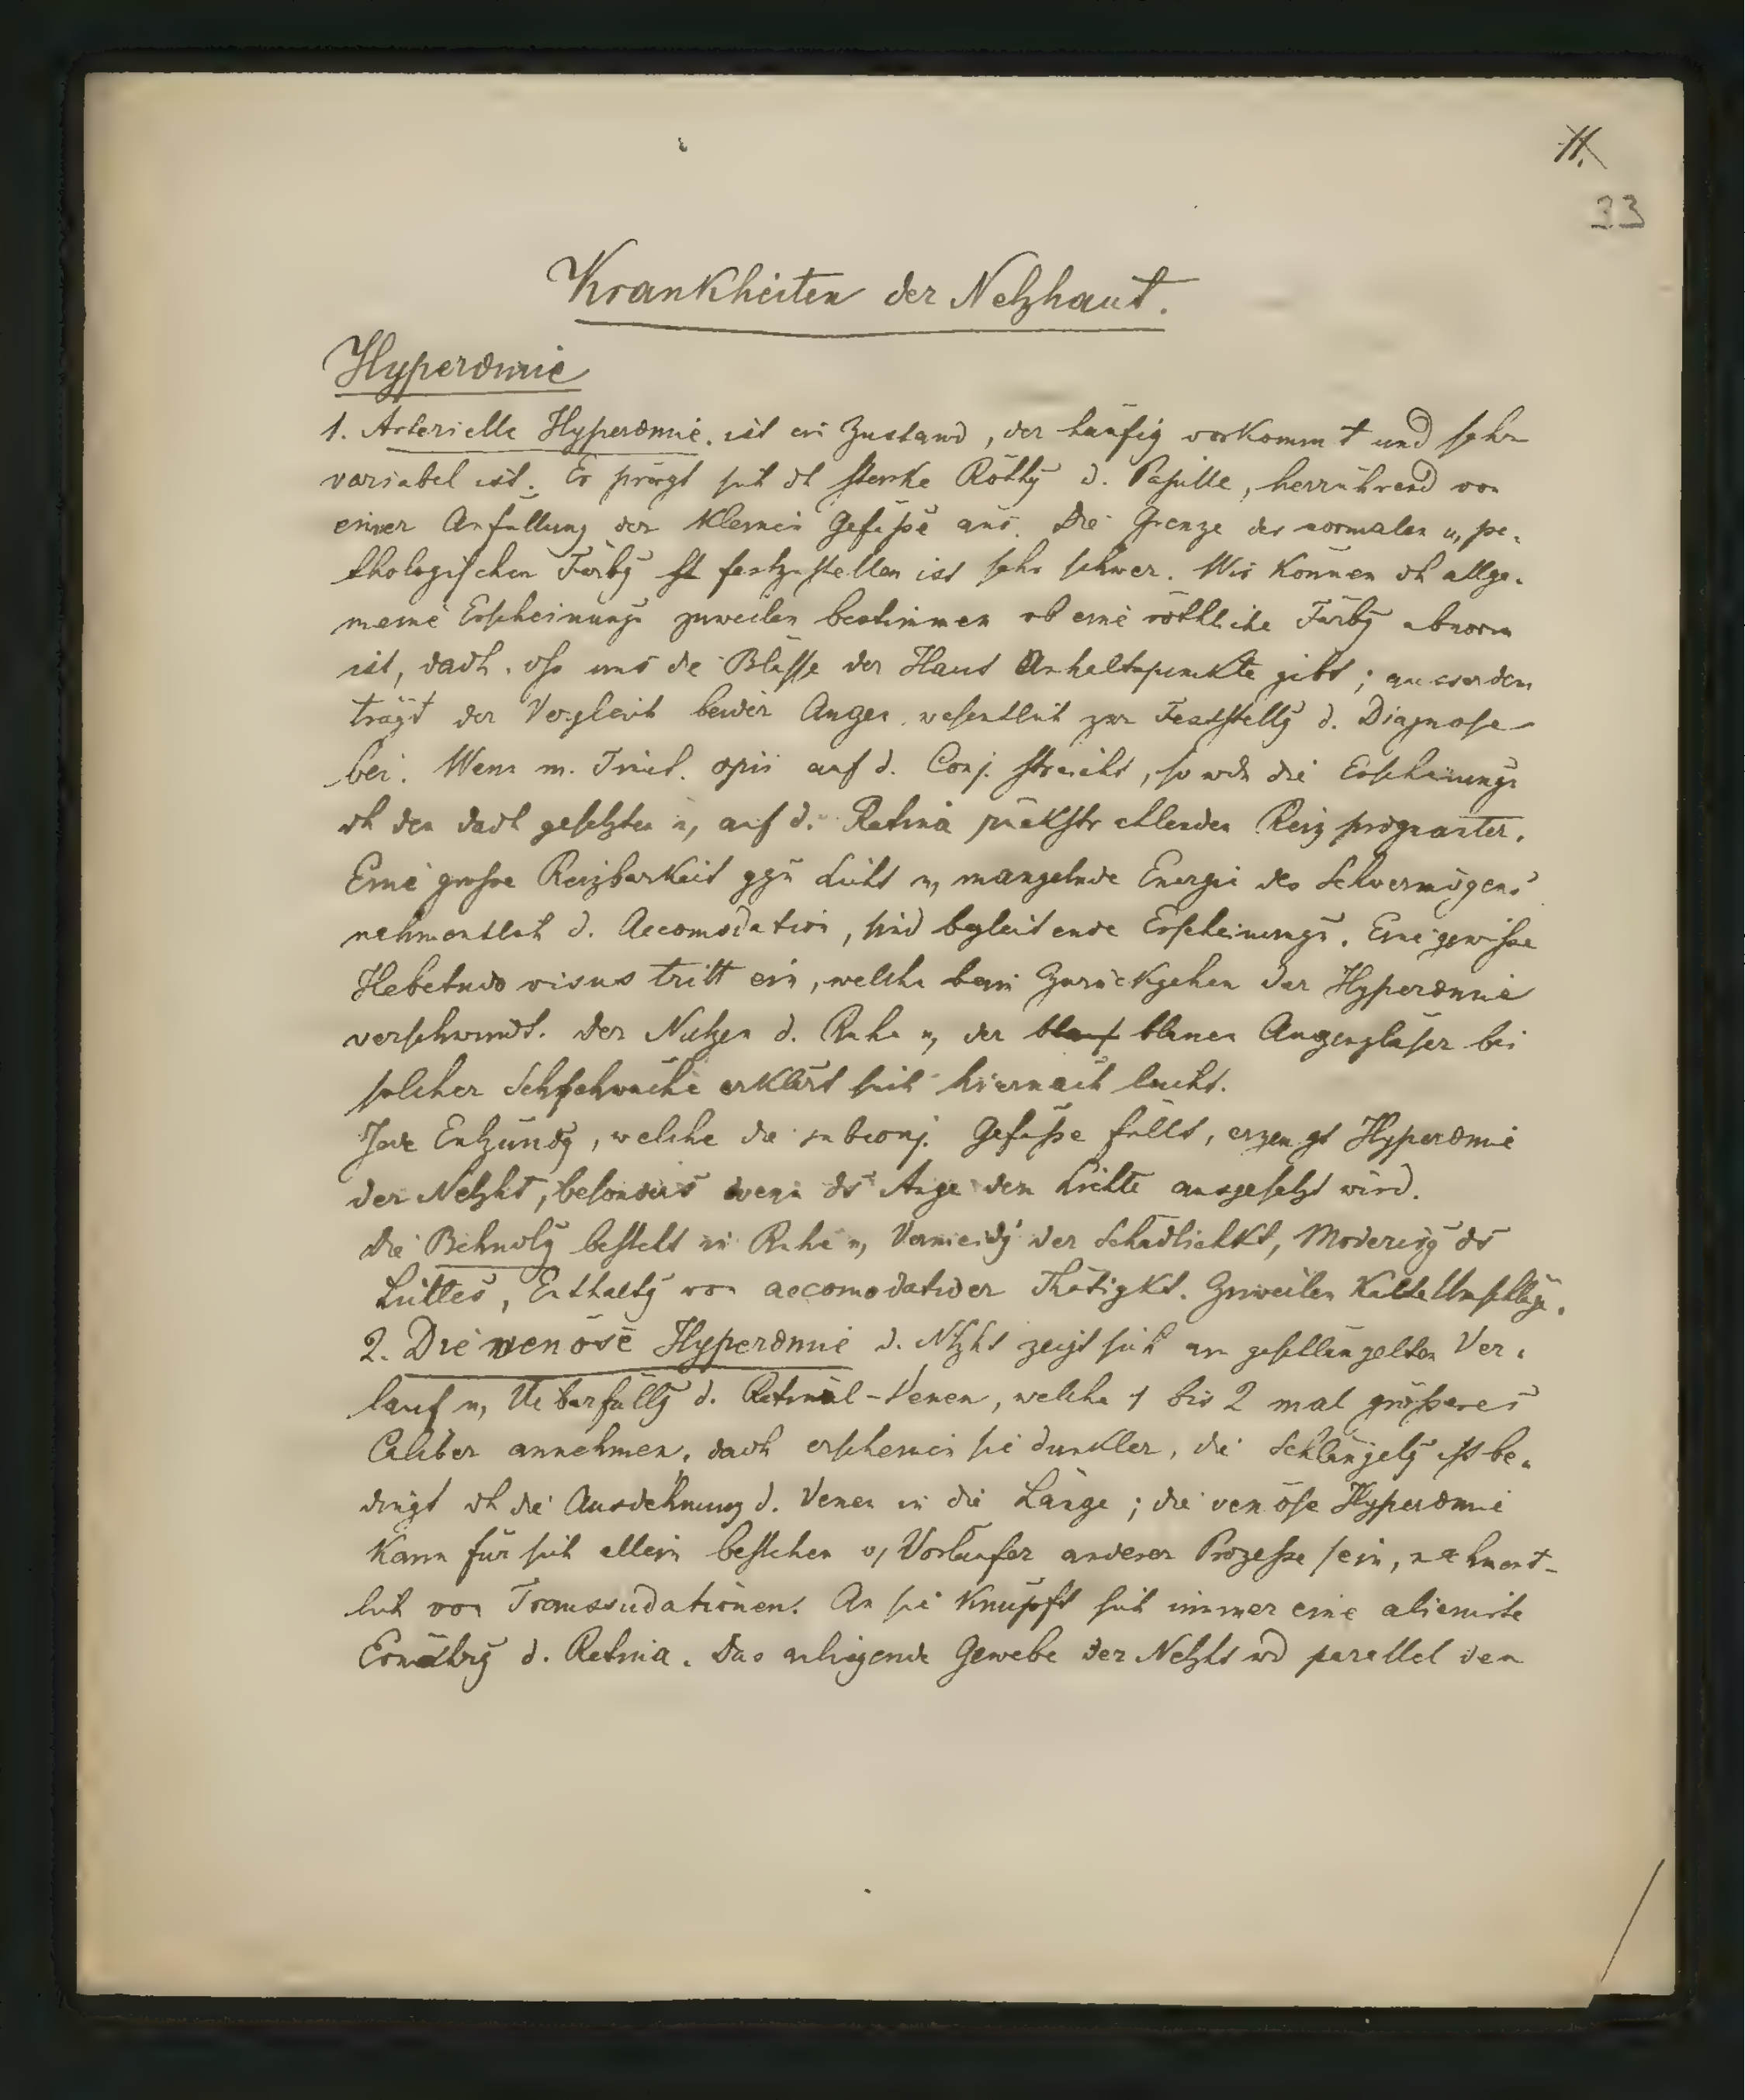 11.
33
Krankheiten der Netzhaut.
Hyperämie
1. Arterielle Hyperämie. ist ein Zustand, der häufig vorkommt und sehr
variabel ist. Er prägt sich dh starke Röthg d. Papille, herrührend von
einer Anfüllung der kleinen Gefäße aus. Die Grenze der normalen u, pa-
thologischen Färbg festzustellen ist sehr schwer. Wir können dh allge-
meine Erscheinungn zuweilen bestimmen ob eine röthliche Färbg abnorm
ist, dadh. uns die Blässe der Haut Anhaltspunkte gibt; ausserdem
trägt der Vergleich beider Augen wesentlich zur Feststellg d. Diagnose
bei. Wenn m. Tinct. opii auf d. Conj. streicht, so wdn die Erscheinungn
dh den dadh gesetzten u, auf d. Retina rückstrahlenden Reiz prägnanter.
Eine grosse Reizbarkeit ggn Licht u, mangelnde Energie des Sehvermögens
nahmentlich d. Accomodation, sind begleitende Erscheinungn. Eine gewisse
Hebetudo visus tritt ein, welche beim Zurückgehen der Hyperämie
verschwindt. Der Nutzen d. Ruhe u, der blauen Augengläser bei
solcher Sehschwäche erklärt sich hiernach leicht.
Jede Entzündg, welche die subconj. Gefäße füllt, erzeugt Hyperämie
der Netzht, besonders wenn ds Auge dem Lichte ausgesetzt wird.
Die Behndlg besteht in Ruhe u, Vermeidg der Schädlichkt, Moderirg ds
Lichtes, Enthaltg von accomodativer Thätigkt. Zuweilen Kalte Umschläge.
2. Die venöse Hyperämie d. Ntzht zeigt sich am geschlängelten Ver-
lauf u, Ueberfüllg d. Retinal-Venen, welche 1 bis 2 mal größeres
Caliber annehmen, dadh erscheinen sie dunkler, die Schlängelg ist be-
dingt dh die Ausdehnung d. Venen in die Länge; die venöse Hyperämie
kann für sich allein bestehen o, Vorläufer anderer Prozesse sein, nahment-
lich von Transsudationen. An sie knüpft sich immer eine alienirte
Ernährg d. Retina. Das anliegende Gewebe der Netzht wd parallel den